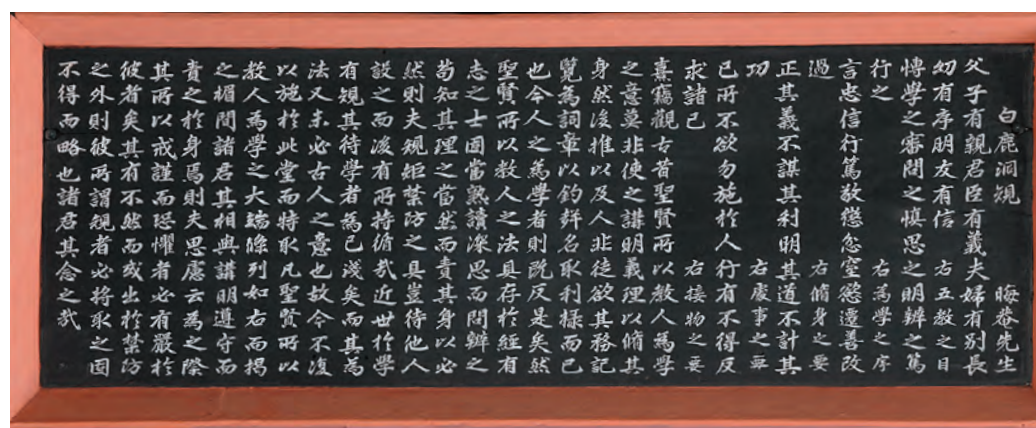 白鹿洞規 晦菴先生
父子有親君臣有義夫婦有別長
幼有序朋友有信 右五教之目
博學之審問之慎思之明辨之篤
行之 右為學之序
言忠信行篤敬懲忿窒慾遷善改
過 右脩身之要
正其義不謀其利明其道不計其
功 右處事之要
已所不欲勿施於人行有不得反
求諸已 右接物之要
熹竊觀古昔聖賢所以教人為學
之意莫非使之講明義理以脩其
身然後推以及人非徒欲其務記
覽為詞章以釣聲名取利祿而已
也今人之為學者則既反是矣然
聖賢所以教人之法具存於經有
志之士固當熟讀深思而問辨之
苟知其理之當然而責其身以必
然則夫規矩禁防之具豈待他人
設之而後有所持循哉近世於學
有規其待學者為已淺矣而其為
法又未必古人之意也故今不復
以施於此堂而特取凡聖賢所以
教人為學之大端條列如右而揭
之楣間諸君其相與講明遵守而
責之於身焉則夫思慮云為之際
其所以戒謹而恐懼者必有嚴於
彼者矣其有不然而或出於禁防
之外則彼所謂規者必將取之固
不得而略也諸君其念之哉